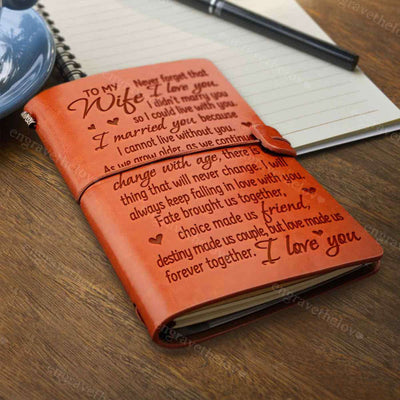 TO MY Wife
Never forget that
I love you
I didn't marry you
so I could live with you.
I married you because
I cannot live without you.
As we grow older, as we continue
change with age, there is
thing that will never change. I will
always keep falling in love with you.
Fate brought us together,
choice made us friend,
destiny made us couple, but love made us
forever together. I love you
engravethelove